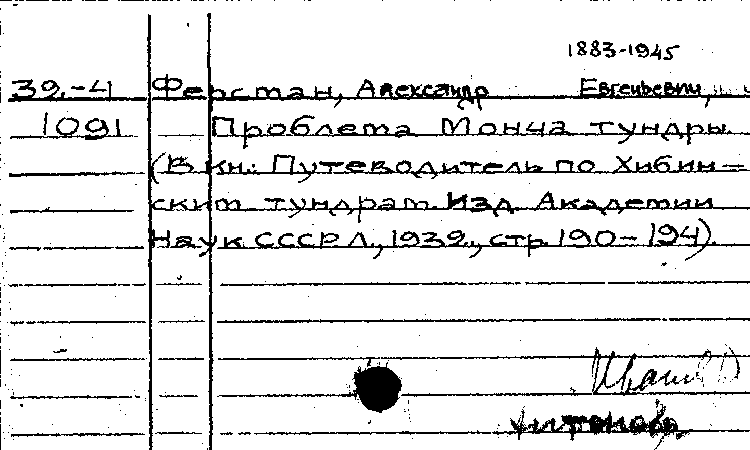 1883-1945
39.-4 Ферсман, Александр Евгеньевич,
1091 Проблема Монча тундры
(В кн.: Путеводитель по Хибин-
ским тундрам Изд. Академии
Наук СССР Л., 1932., стр. 190-194).